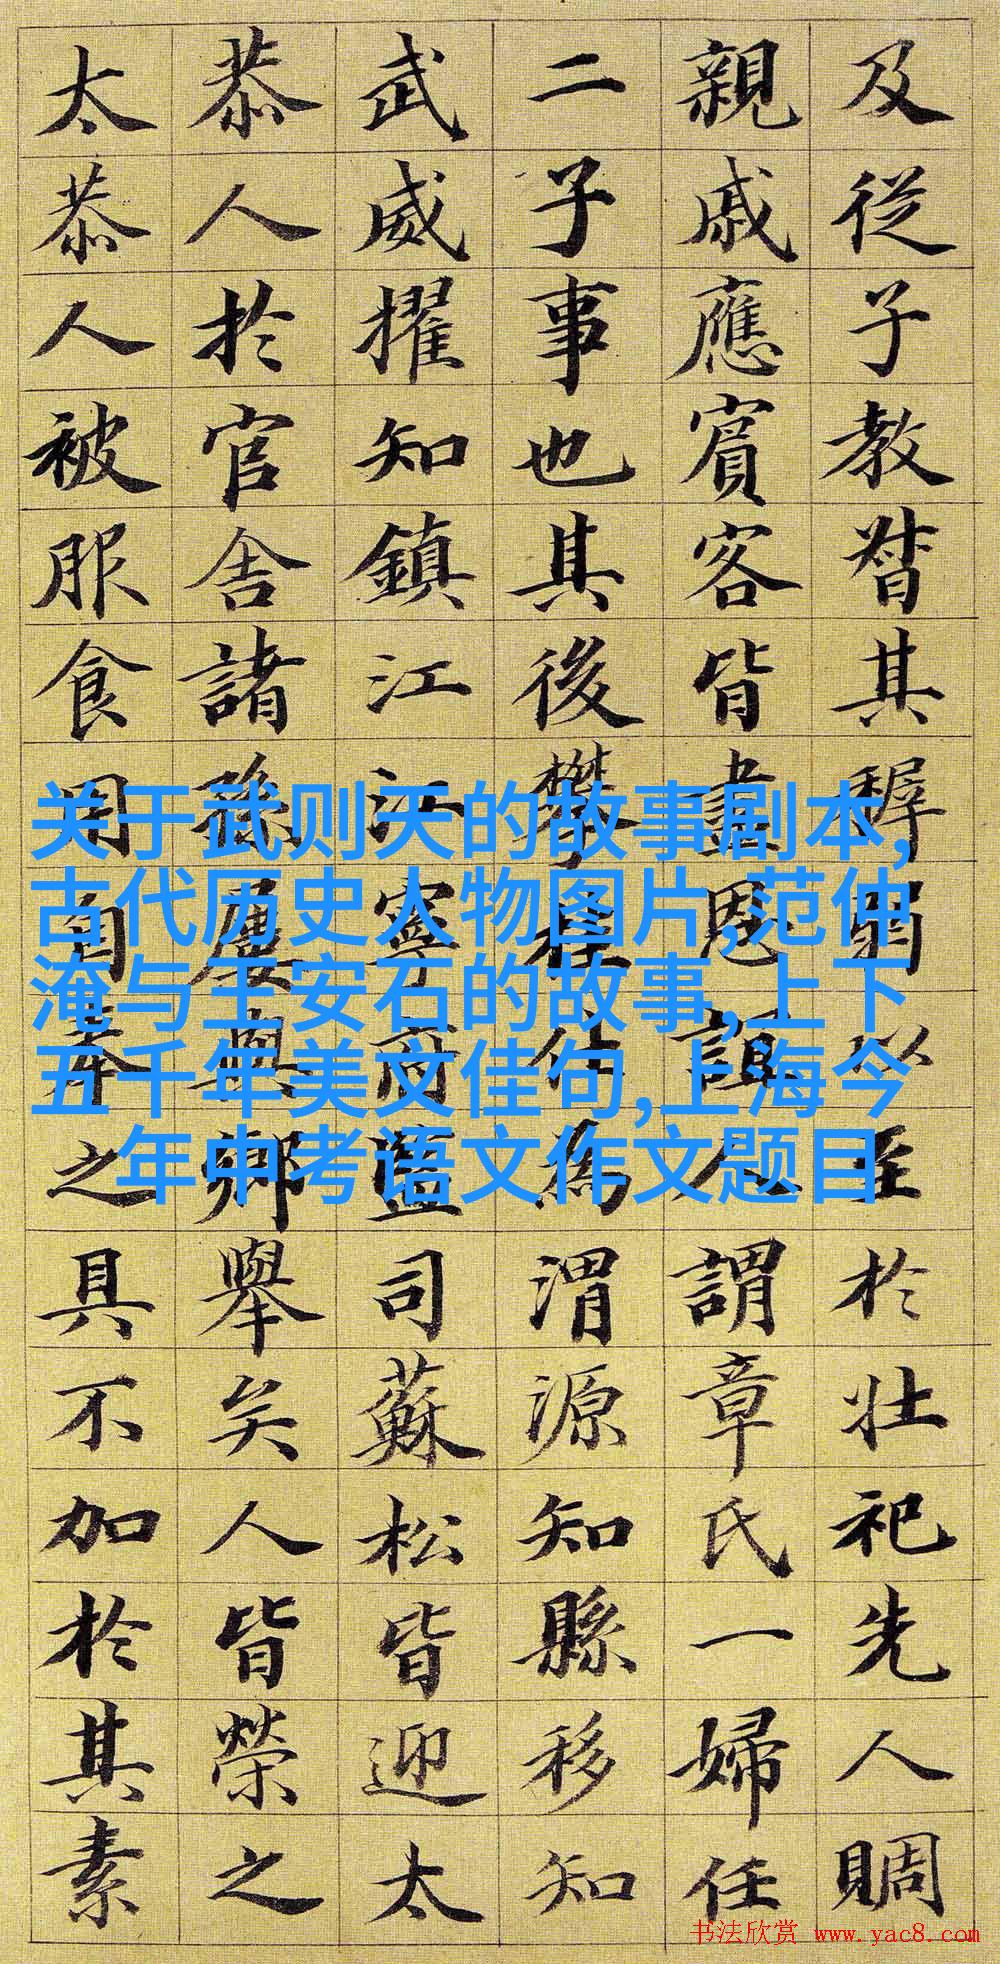 及從子教督其稺弱以至於壯祀先人賙
親戚應賓客皆盡恩誼人謂章氏一婦任
二子事也其後攀桂仕為渭源知縣移知
武威擢知鎮江江寧府監司蘇松皆迎太
恭人於官舍諸孫屢與鄉舉矣人皆榮之
太恭人被服食用自奉之具不加於其素
关于武则天的故事剧本,
古代历史人物图片,范仲
淹与王安石的故事,上下
五千年美文佳句,上海今
年中考语文作文题目
书法欣赏 www.yac8.com